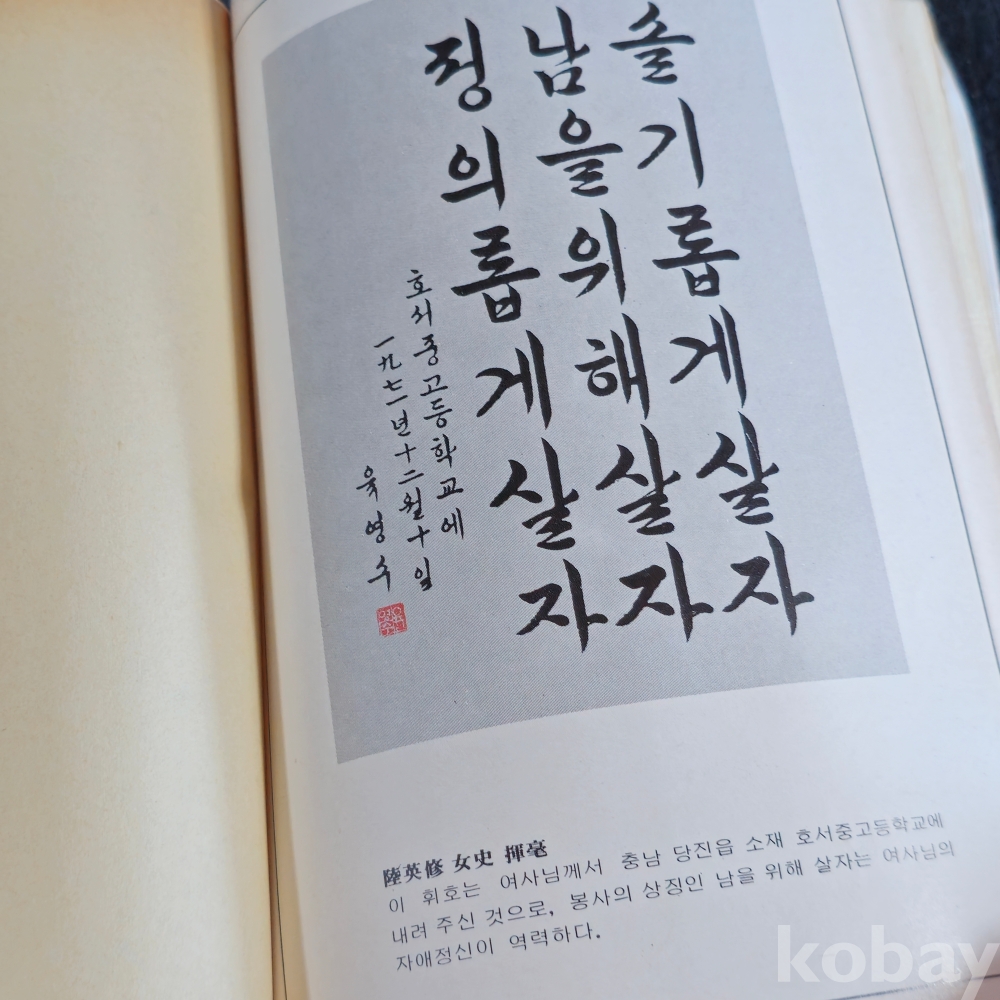 슬기롭게살자
남을위해살자
정의롭게살자
호서중고등학교에
一九七一년十二월十일
육영수
陸英修 女史 揮毫
이 휘호는 여사님께서 충남 당진읍 소재 호서중고등학교에
내려 주신 것으로, 봉사의 상징인 남을 위해 살자는 여사님의
자애정신이 역력하다.
kobay